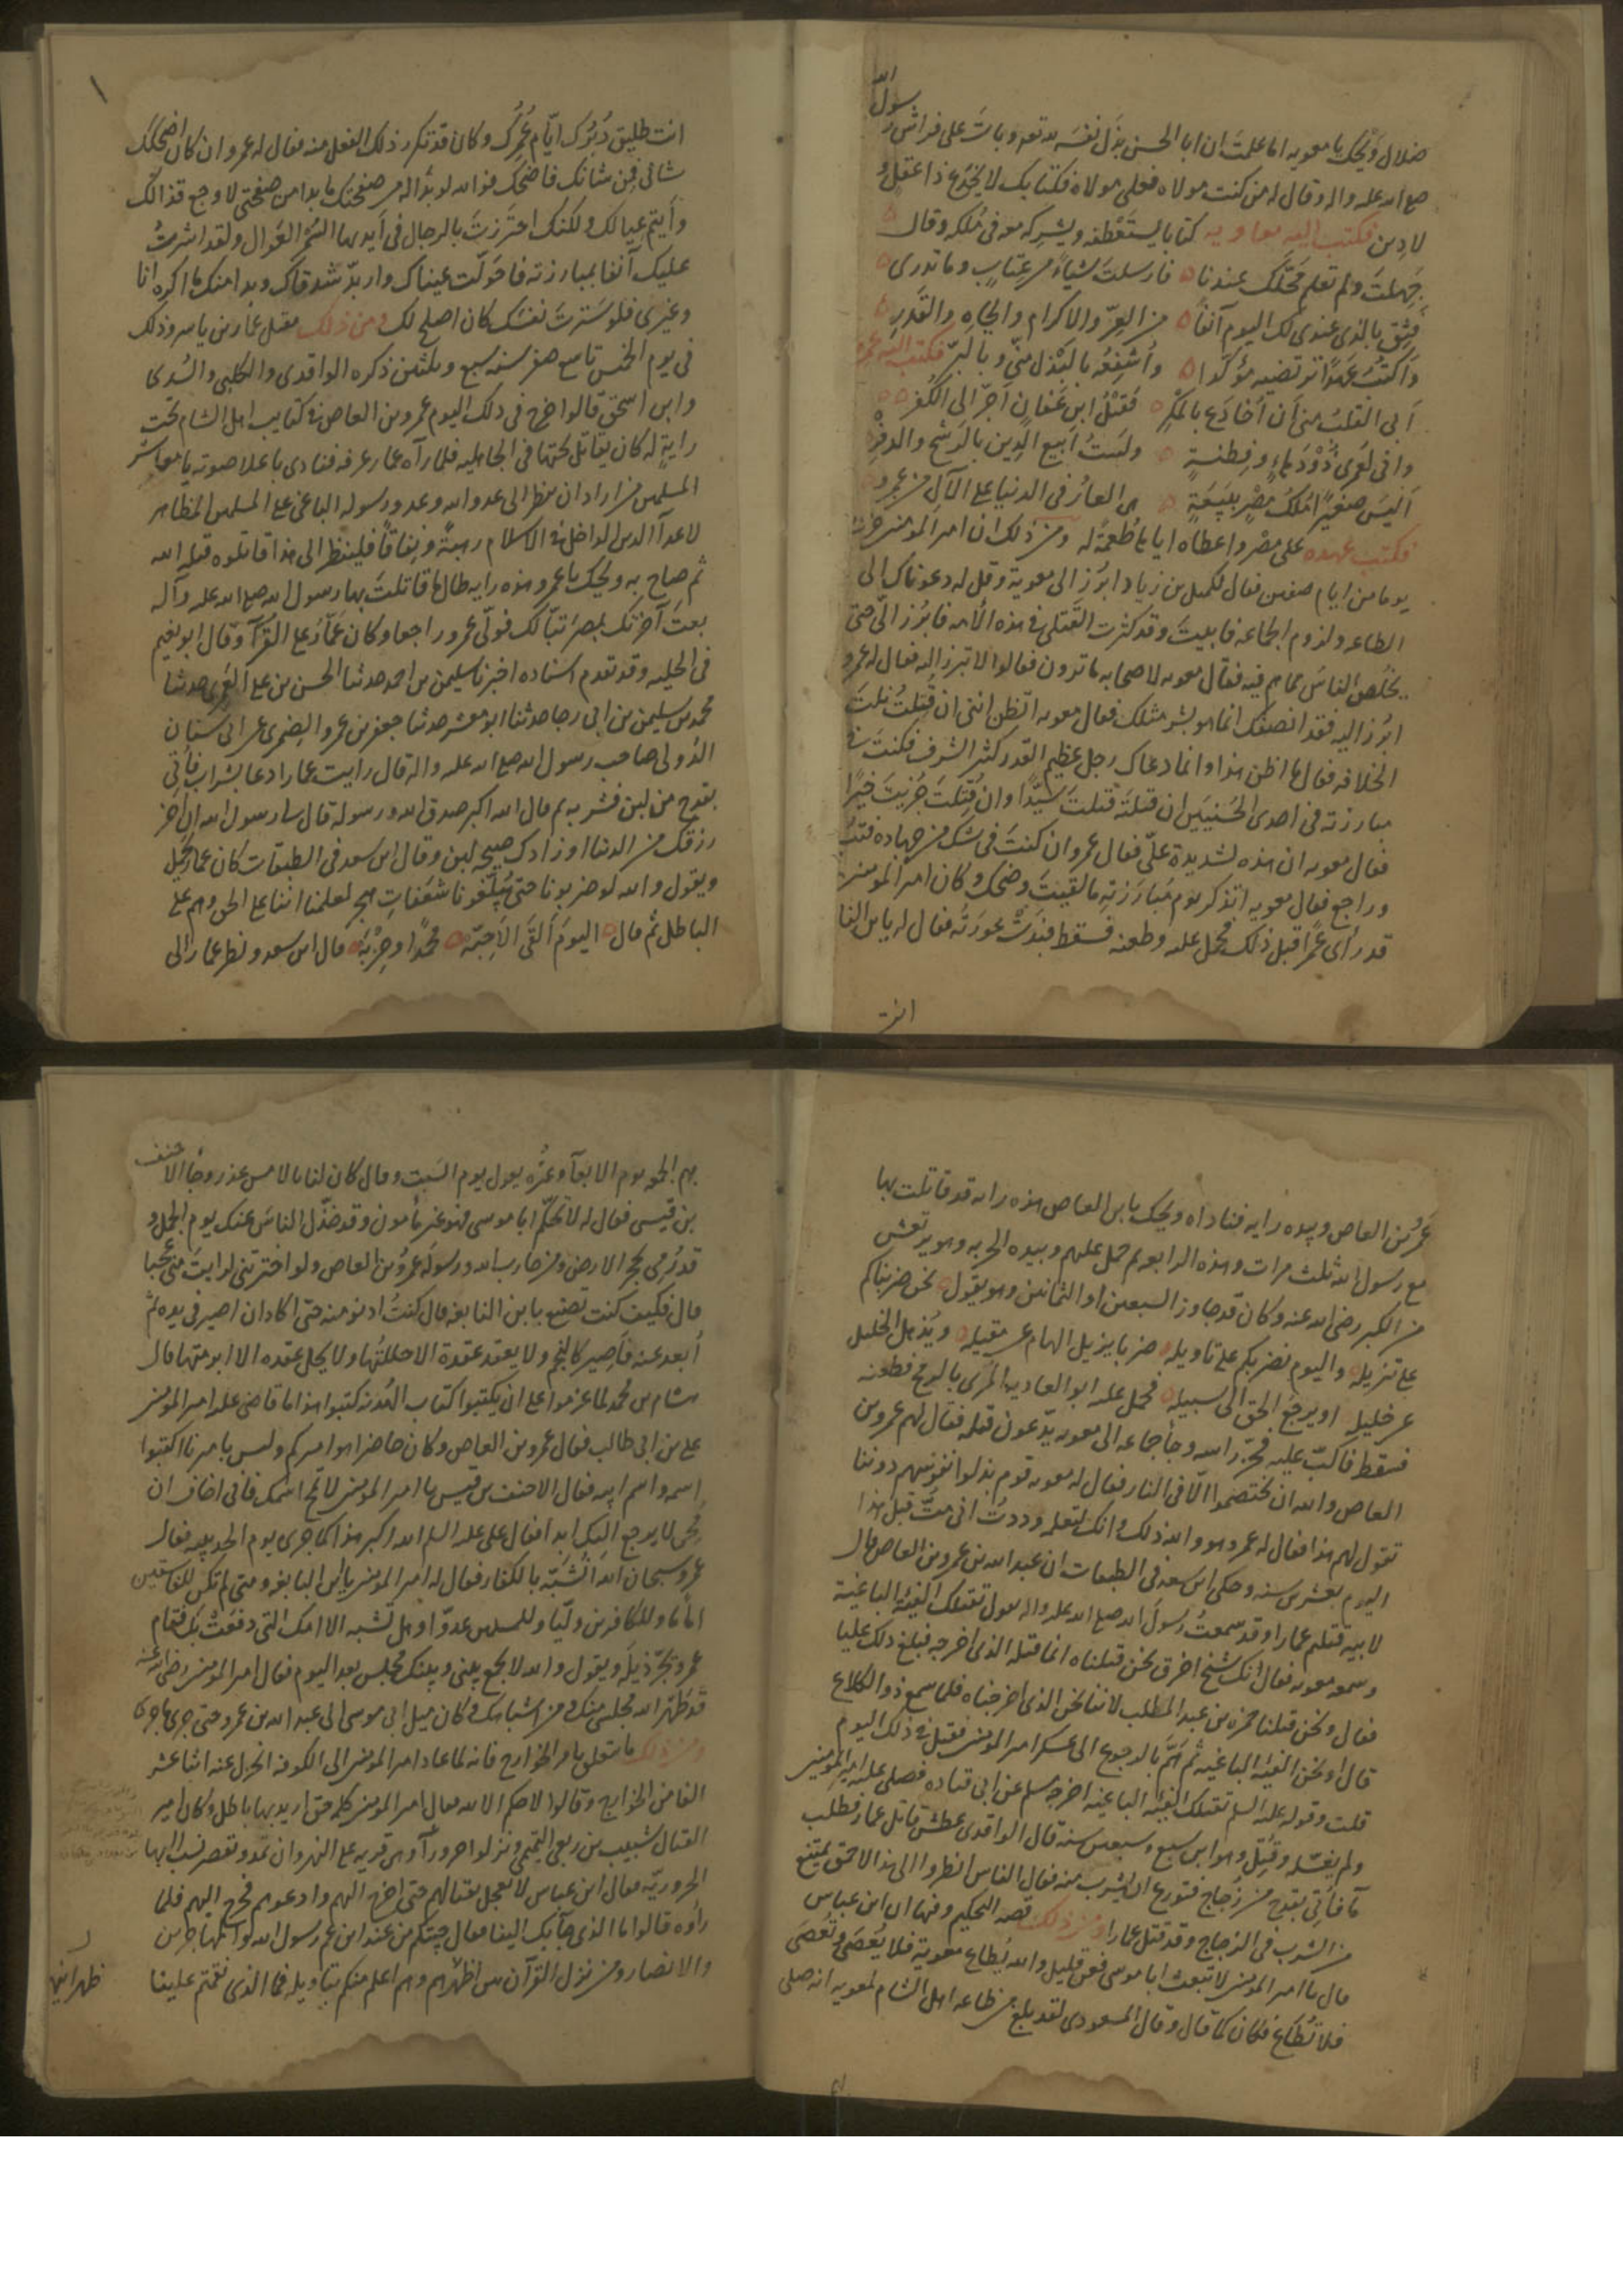 رسول الله
ضلال ويحك يا معويه اما علمت ان ابا الحسن بذل نفسه لله تعالى وبات على فراش
صلى الله عليه واله وقال له من كنت مولاه فعلي مولاه فكتابك لا يخدع ذا عقل
لا دين فكتب اليه معاويه كتابا يستعطفه ويشركه معه في ملكه وقال
جهلت ولم تعلم محلك عندنا فارسلت شياء من عتاب وما تدري
فثق بالذي عندي لك اليوم آنفا من العز والاكرام والجاه والقدر
واكتب عهدا ترتضيه مؤكدا واشفعه بالبذل مني وبالبر فكتب اليه عمرو
ابى القلب مني ان اخادع بالمكر فقتل ابن عفان اجر الى الكفر
واني لعمري ذو دهاء وفطنة ولست ابيع الدين بالربح والدفر
اليس صغيرا ملك مصر ببيعة هي العار في الدنيا على الآل من عمرو
فكتب عهده على مصر واعطاه اياها طعمة له ومن ذلك ان امير المومنين خرج
يوما من ايام صفين فقال لكميل بن زياد ابرز الى معوية وقل له دعوناك الى
الطاعه ولزوم الجماعه فابيت وقد كثرت القتلى في هذه الأمه فابرز الي حتى
يخلص الناس مما هم فيه فقال معويه لاصحابه ما ترون فقالوا لا تبرز اليه فقال له عمرو
ابرز اليه فقد انصفك انما هو بشر مثلك فقال معويه اتظن انني ان قتلت نلت
الخلافه فقال ما اظن هذا وانما دعاك رجل عظيم القدر كثير الشرف فكنت في
مبارزته في احدى الحسنيين ان قتلته قتلت سيدا وان قتلت جزيت خيرا
فقال معويه ان هذه لشديدة علي فقال عمرو ان كنت في شك من جهاده فتب
وراجع فقال معويه اتذكر يوم مبارزته ما لقيت وضحك وكان امير المومنين
قد رأى عمرا قبل ذلك فحمل عليه وطعنه فسقط فبدت عورته فقال له يا بن النا
انت
انت طليق دبرك ايام عمرك وكان قد تكرر ذلك الفعل منه فقال له عمرو ان كان اضحكك
شانى فمن شانك فاضحك فوالله لو بدا له من صفحتك ما بدا من صفحتي لاوجع قذالك
وأيتم عيالك ولكنك احترزت بالرجال في أيديها السمر العوال ولقد اشرت
عليك آنفا بمبارزته فاحولت عيناك واربد شدقاك وبدا منك ما اكره انا
وغيري فلو سترت نفسك كان اصلح لك ومن ذلك مقتل عمار بن ياسر وذلك
في يوم الخميس تاسع صفر سنه سبع وثلثين ذكره الواقدي والكلبي والسدي
وابن اسحق قالوا خرج في ذلك اليوم عمرو بن العاص في كتايب اهل الشام تحت
راية له كان يقاتل تحتها في الجاهليه فلما رآه عمار عرفه فنادى باعلا صوته يا معاشر
المسلمين من اراد ان ينظر الى عدو الله وعدو رسوله الباغي على المسلمين المظاهر
لاعدآ الدين الداخل في الاسلام رهبة ونفاقا فلينظر الى هذا قاتلوه قتله الله
ثم صاح به ويحك يا عمرو هذه رايه طال ما قاتلت بها رسول الله صلى الله عليه وآله
بعت آخرتك بمصر تبا لك فولى عمرو راجعا وكان عمار على القرآ وقال ابو نعيم
في الحليه وقد تقدم اسناده اخبرنا سليمن بن احمد حدثنا الحسن بن علي المعمري حدثنا
محمد بن سليمن بن ابي رجا حدثنا ابو معشر حدثنا جعفر بن عمرو الضمري عن ابي سنان
الدولي صاحب رسول الله صلى الله عليه واله قال رايت عمارا دعا بشراب فأتي
بقدح من لبن فشر به ثم قال الله اكبر صدق الله ورسوله قال لي رسول الله ان آخر
رزقك من الدنيا او زادك صبيحه لبن وقال ابن سعد في الطبقات كان عمار يحمل
ويقول والله لو ضربونا حتى يبلغونا شعفات هجر لعلمنا اننا على الحق وهم على
الباطل ثم قال اليوم ألقى الاحبة محمدا وحزبه قال ابن سعد ونظر عمار الى
عمرو بن العاص وبيده رايه فناداه ويحك يا بن العاص هذه رايه قد قاتلت بها
مع رسول الله ثلث مرات وهذه الرابعه ثم حمل عليهم وبيده الحربه وهو يرتعش
من الكبر رضى الله عنه وكان قد جاوز السبعين او الثمانين وهو يقول نحن ضربناكم
على تنزيله واليوم نضربكم على تاويله ضربا يزيل الهام عن مقيله ويذهل الخليل
عن خليله او يرجع الحق الى سبيله فحمل عليه ابو العاديه المري بالرمح فطعنه
فسقط فاكب عليه فحز راسه وجا جماعه الى معويه يدعون قتله فقال لهم عمرو بن
العاص والله ان تختصموا الا في النار فقال له معويه قوم بذلوا نفوسهم دوننا
تقول لهم هذا فقال له عمرو هو والله ذلك وانك لتعلمه ووددت اني مت قبل هذا
اليوم بعشرين سنه وحكى ابن سعد في الطبقات ان عبد الله بن عمرو بن العاص قال
لابيه قتلتم عمارا وقد سمعت رسول الله صلى الله عليه واله يقول تقتلك الفئة الباغية
وسمعه معويه فقال انك شيخ اخرق نحن قتلناه انما قتله الذي اخرجه فبلغ ذلك عليا
فقال ونحن قتلنا حمزه بن عبد المطلب لاننا نحن الذي اخرجناه فلما سمع ذو الكلاع
قال او نحن الفئه الباغيه ثم هم بالرجوع الى عسكر امير المومنين فقتل في ذلك اليوم
قلت وقوله عليه السلم تقتلك الفئه الباغيه اخرجه مسلم عن ابي قتاده فصلى عليه امير المومنين
ولم يغسله وقتل وهو ابن سبع وسبعين سنه قال الواقدي عطش قاتل عمار فطلب
مآ فأتي بقدح من زجاج فتورع ان يشرب منه فقال الناس انظروا الى هذا الاحمق يمتنع
من الشرب في الزجاج وقد قتل عمارا ومن ذلك قصه التحكيم وفيها ان ابن عباس
قال يا امير المومنين لا تبعث ابا موسى فعن قليل والله يطاع معوية فلا يعصى وتعصى
فلا تطاع فكان كما قال وقال المسعودي لقد بلغ من طاعه اهل الشام لمعويه انه صلى
بهم الجمعه يوم الاربعآ وغيره يقول يوم السبت وقال كان لنا بالامس عذر وجا الاحنف
بن قيس فقال له لا تحكم ابا موسى فهو غير مأمون وقد خذل الناس عنك يوم الجمل و
قد رمي بحجر الارض ومن حارب الله ورسوله عمرو بن العاص ولو اخترتني لرايت مني عجبا
قال فكيف كنت تصنع بابن النابغه قال كنت ادنو منه حتى اكاد ان اصير في يده ثم
أبعد عنه فاصير كالنجم ولا يعقد عقدة الا حللتها ولا يحل عقده الا ابرمتها قال
هشام بن محمد لما عزموا على ان يكتبوا كتاب الهدنه كتبوا هذا ما قاضى عليه امير المومنين
على بن ابي طالب فقال عمرو بن العاص وكان حاضرا هو اميركم وليس باميرنا اكتبوا
اسمه واسم ابيه فقال الاحنف بن قيس يا امير المومنين لا تمح اسمك فاني اخاف ان
محى لا يرجع اليك ابدا فقال على عليه السلم الله اكبر هذا كما جرى يوم الحديبيه فقال
عمرو سبحان الله انشبه بالكفار فقال له امير المومنين يا بن النابغه ومتى لم تكن للفاسقين
اماما وللكافرين وليا وللمسلمين عدوا وهل تشبه الا امك التي دفعت بك فقام
عمرو يجر ذيله ويقول والله لا يجمع بيني وبينك مجلس بعد اليوم فقال امير المومنين رضى الله عنه
قد طهر الله مجلسي منك ومن اشباهك وكان ميل ابي موسى الى عبد الله بن عمرو حتى جرى ما جرى
ومن ذلك ما يتعلق بامر الخوارج فانه لما عاد امير المومنين الى الكوفه انخزل عنه اثنا عشر
الفا من الخوارج وقالوا لا حكم الا لله فقال امير المومنين كلمه حق اريد بها باطل وكان امير
القتال شبيب بن ربعى التميمي ونزلوا حرورآ وهي قريه على النهروان تمد وتقصر نسب اليها
الحروريه فقال ابن عباس لا تعجل بقتالهم حتى اخرج اليهم وادعوهم فخرج اليهم فلما
رأوه قالوا ما الذي جآ بك الينا فقال جيتكم من عند ابن عم رسول الله والمهاجرين
والانصار ومن نزل القرآن بين اظهرهم وهم اعلم منكم بتاويله فما الذي نقمتم علينا
ظهرانيها